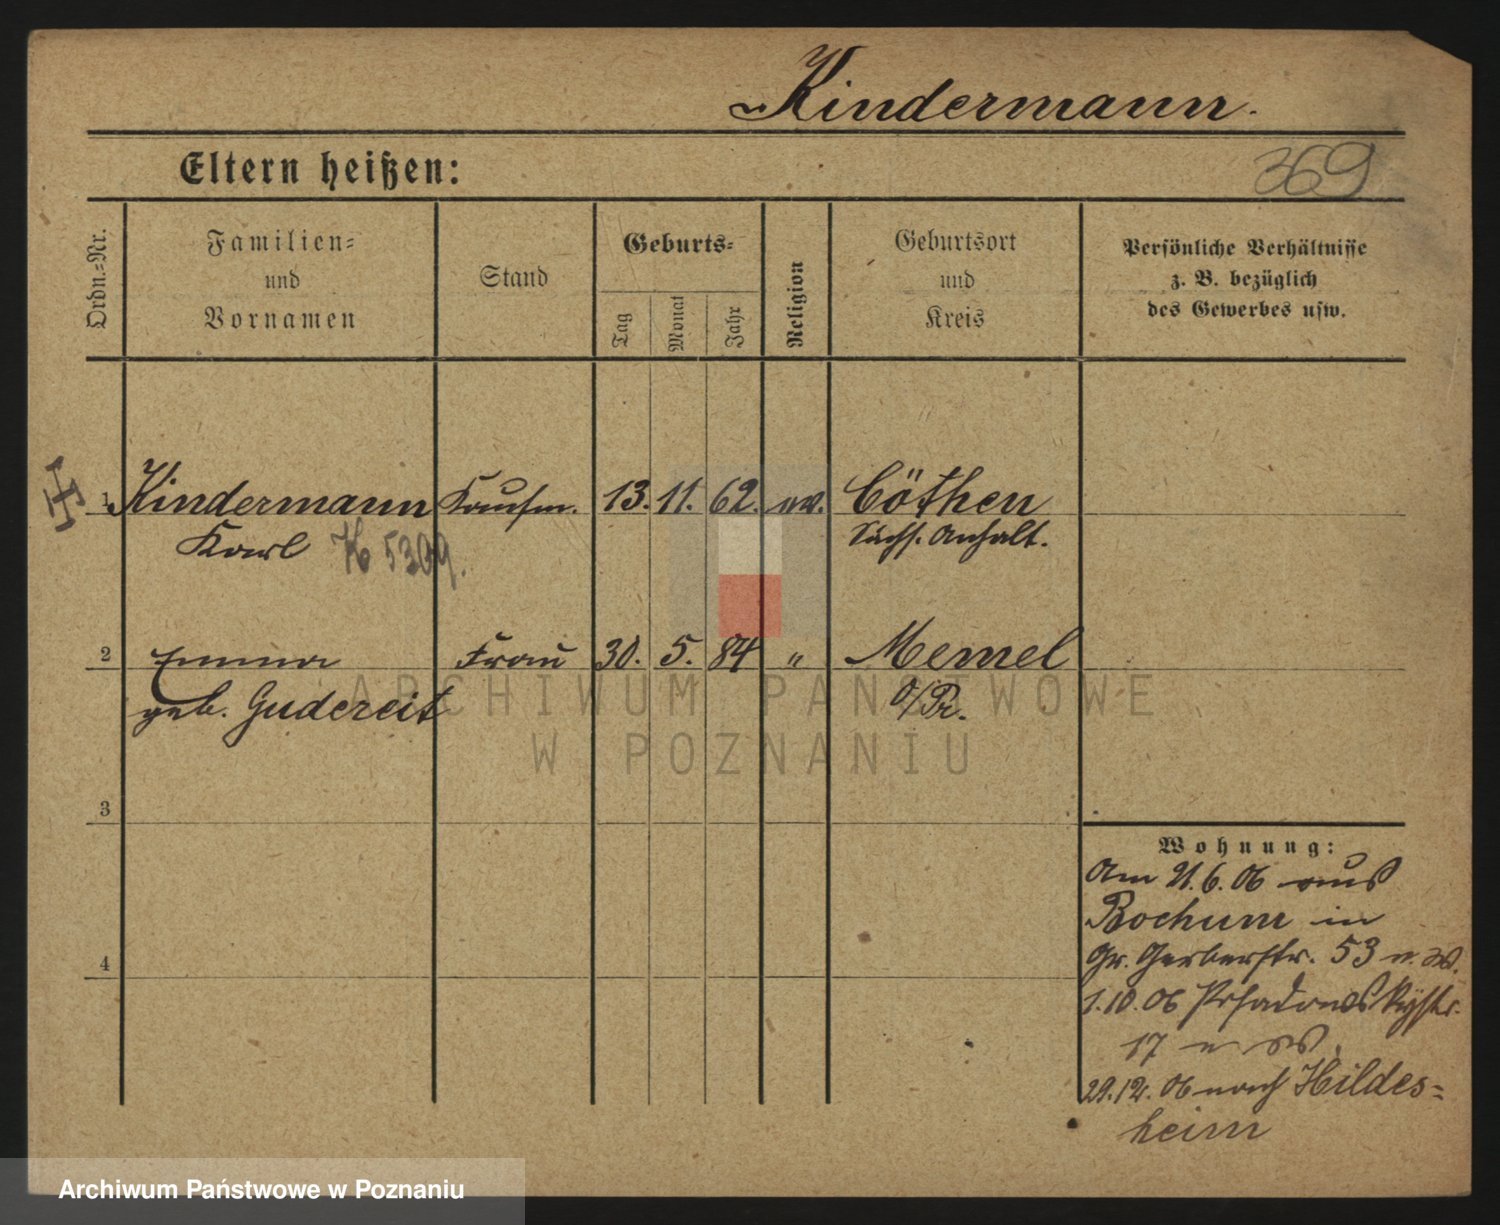 Kindermann.
Eltern heißen:
369
Ordn.-Nr.
Familien-
und
Vornamen
Stand
Geburts-
Tag
Monat
Jahr
Religion
Geburtsort
und
Kreis
Persönliche Verhältnisse
z. B. bezüglich
des Gewerbes usw.
1 Kindermann Kaufm. 13. 11. 62. ev. Cöthen
Karl K 5309. Sachs. Anhalt.
2 Emma Frau 30. 5. 84 " Memel
geb. Gudereit O/Pr.
ARCHIWUM PAŃSTWOWE
W POZNANIU
3
4
Wohnung:
Am 21.6.06 aus
Bochum in
Gr. Gerberstr. 53 n. W.
1.10.06
17 n W.
29.12.06 nach Hildes=
heim
Archiwum Państwowe w Poznaniu